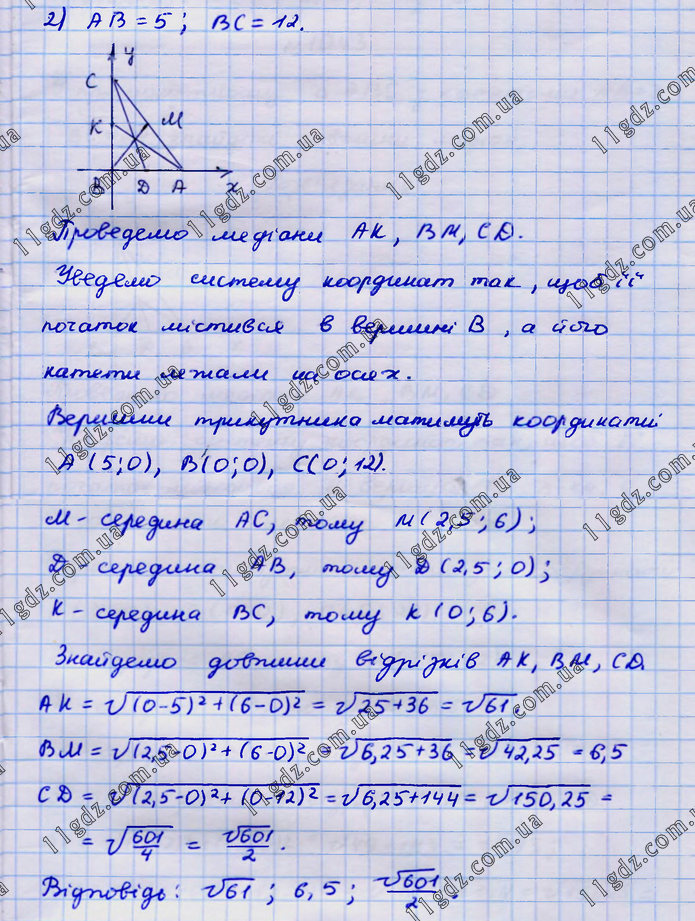 2) AB = 5; BC = 12.
y
C
K
M
B
D
A
x
Проведемо медіани AK, BM, CD.
Уведемо систему координат так, щоб її
початок містився в вершині B, а його
катети лежали на осях.
Вершини трикутника матимуть координати
A (5; 0), B (0; 0), C (0; 12).
M - середина AC, тому M (2,5; 6);
D - середина AB, тому D (2,5; 0);
K - середина BC, тому K (0; 6).
Знайдемо довжини відрізків AK, BM, CD.
AK = √((0-5)² + (6-0)²) = √(25+36) = √61.
BM = √((2,5-0)² + (6-0)²) = √(6,25+36) = √42,25 = 6,5
CD = √((2,5-0)² + (0-12)²) = √(6,25+144) = √150,25 =
= √(601/4) = √601/2.
Відповідь: √61; 6,5; √601/2.
11gdz.com.ua